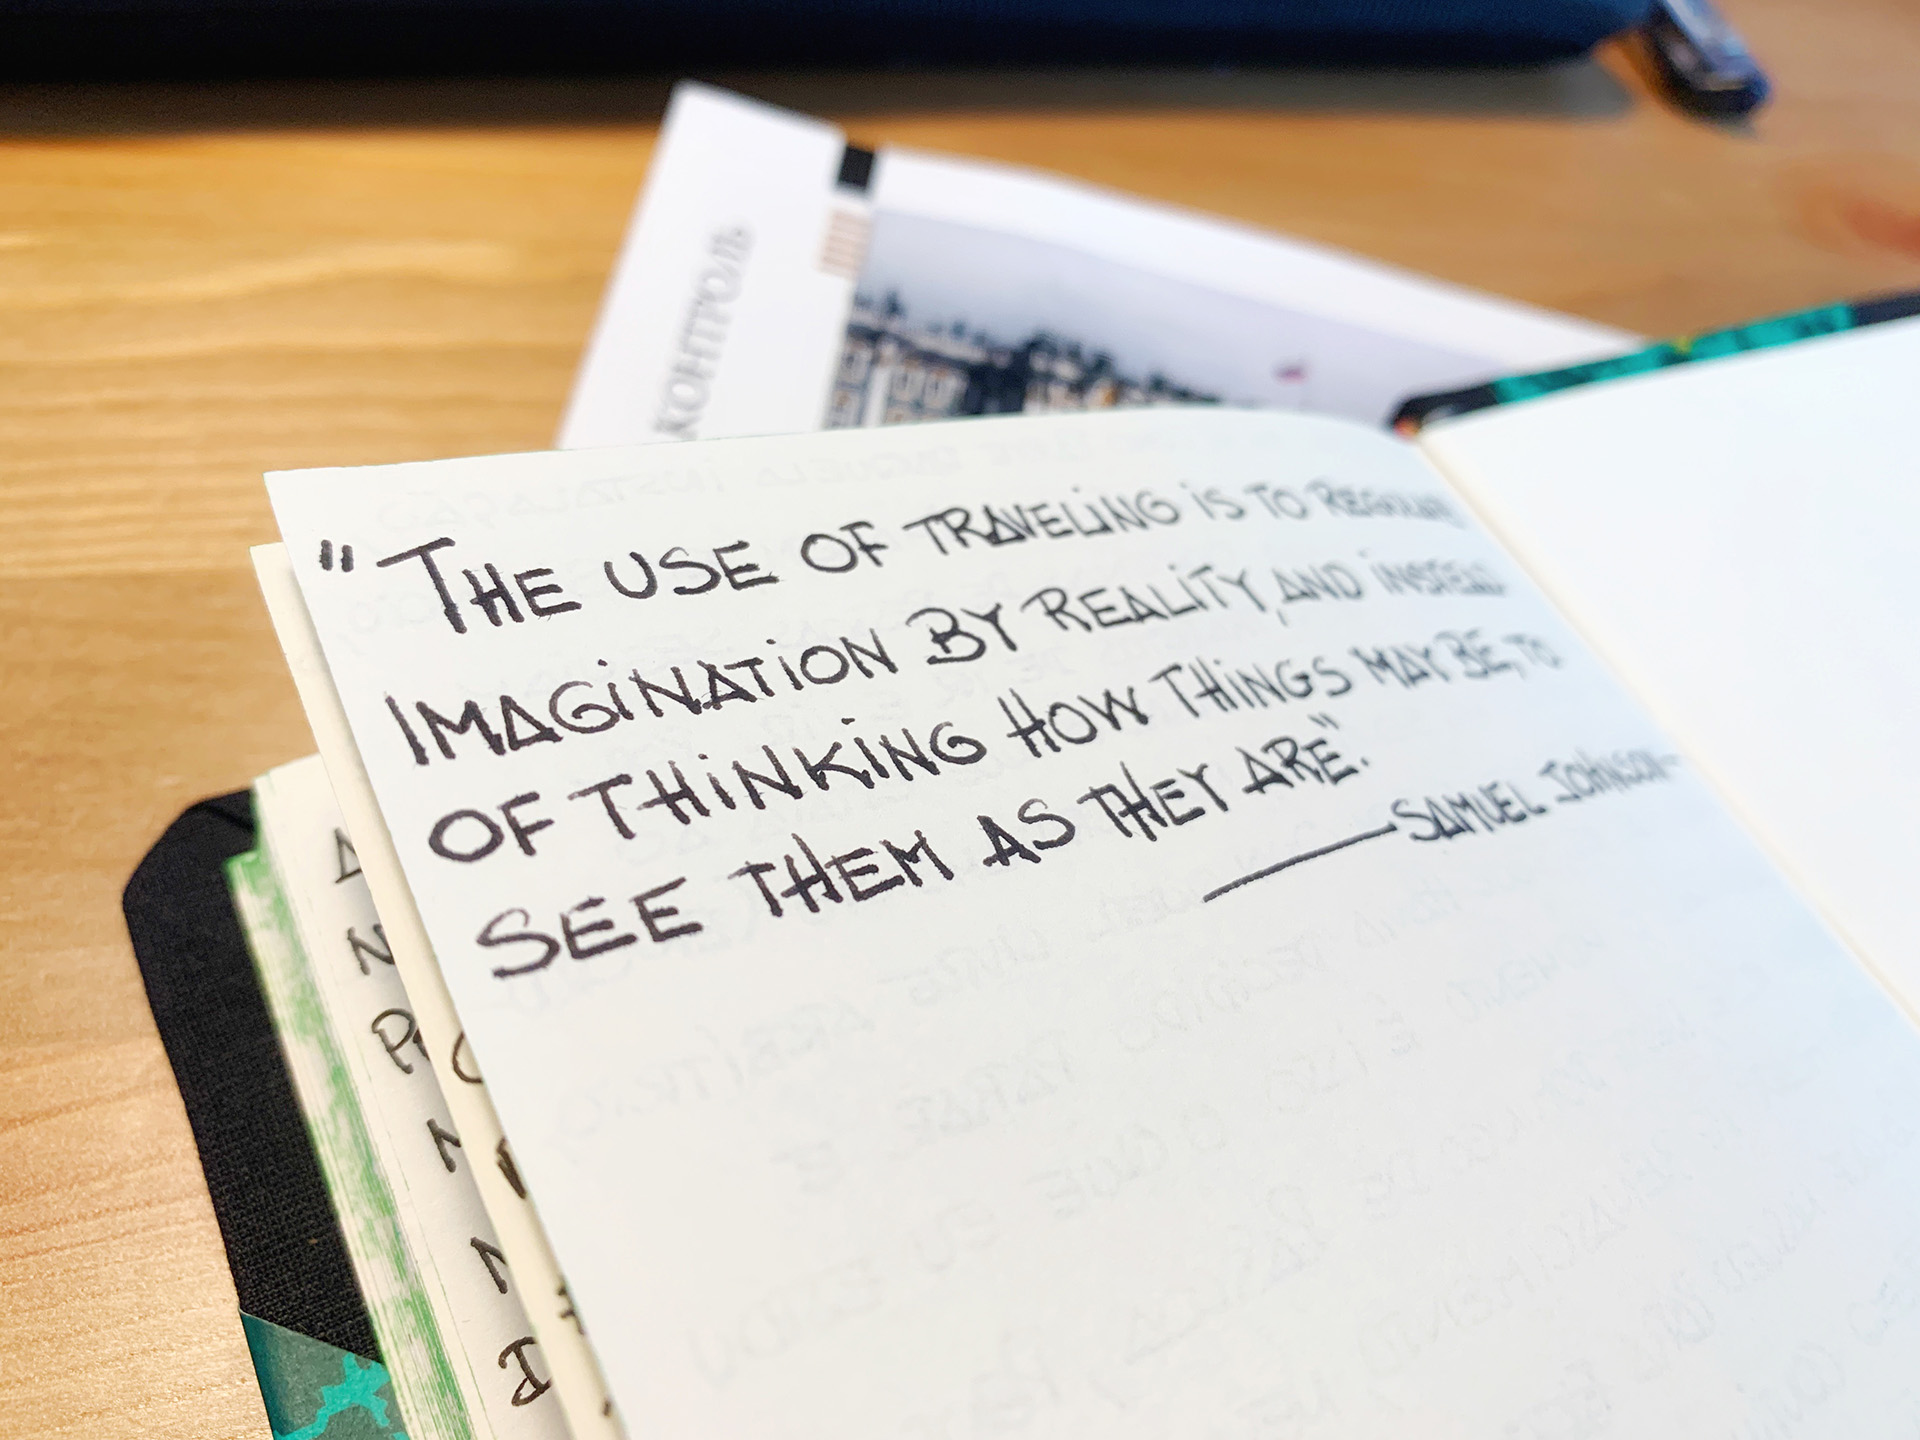 КОНТРОЛЬ
"THE USE OF TRAVELING IS TO REGULATE
IMAGINATION BY REALITY, AND INSTEAD
OF THINKING HOW THINGS MAY BE, TO
SEE THEM AS THEY ARE".
SAMUEL JOHNSON